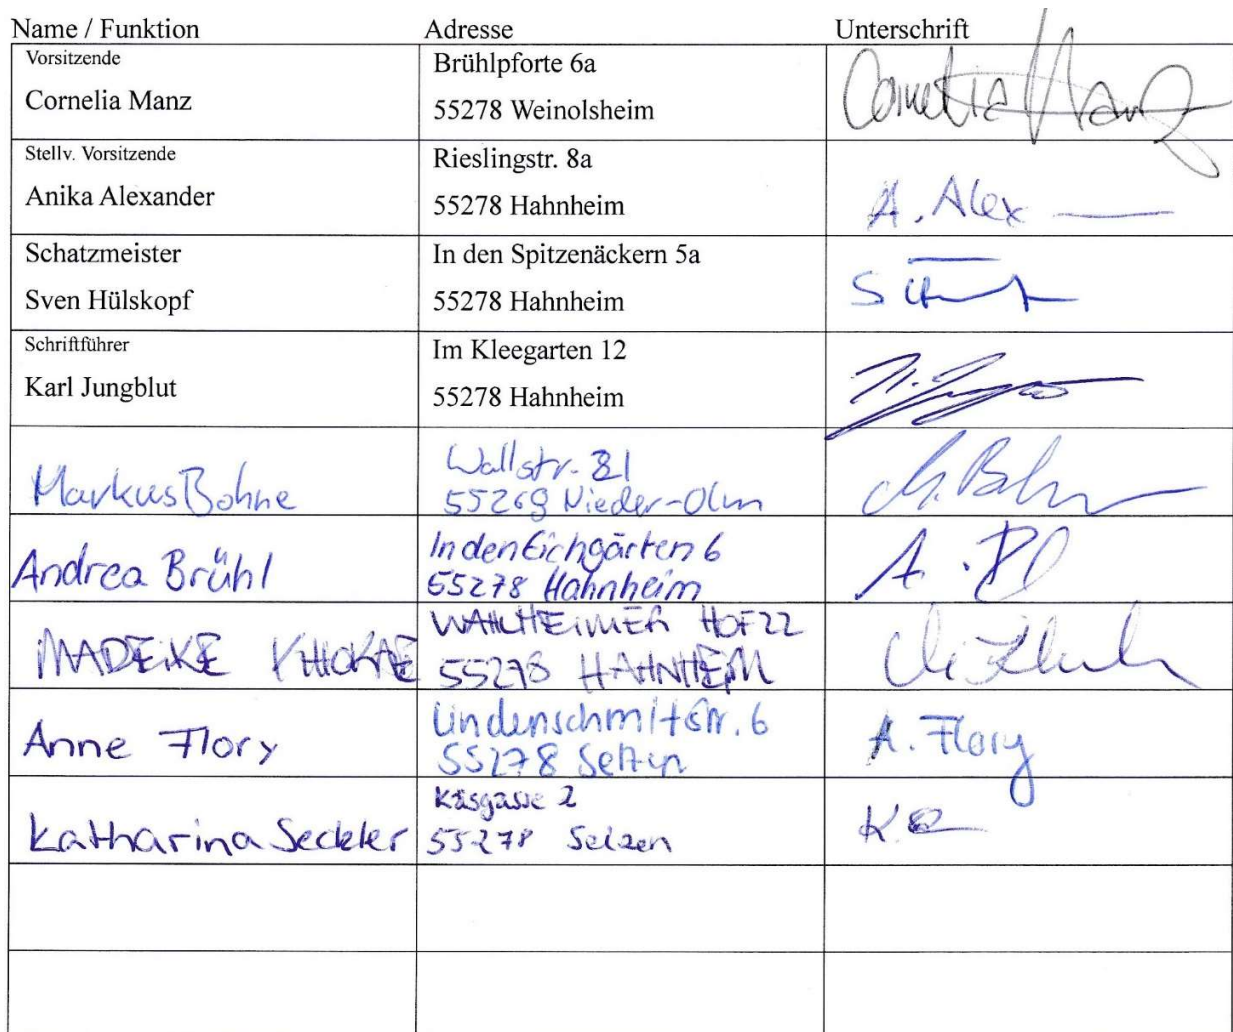 Name / Funktion Adresse Unterschrift
Vorsitzende
Cornelia Manz
Brühlpforte 6a
55278 Weinolsheim
Cornelia Manz
Stellv. Vorsitzende
Anika Alexander
Rieslingstr. 8a
55278 Hahnheim
A. Alex
Schatzmeister
Sven Hülskopf
In den Spitzenäckern 5a
55278 Hahnheim
Schriftführer
Karl Jungblut
Im Kleegarten 12
55278 Hahnheim
Markus Bohne
Wallstr. 81
55268 Nieder-Olm
Andrea Brühl
In den Eichgärten 6
55278 Hahnheim
MADEIKE
WAHLHEIMER HOF 22
55278 HAHNHEIM
Anne Flory
Lindenschmitstr. 6
55278 Selzen
A. Flory
Katharina Seckler
Käsgasse 2
55278 Selzen